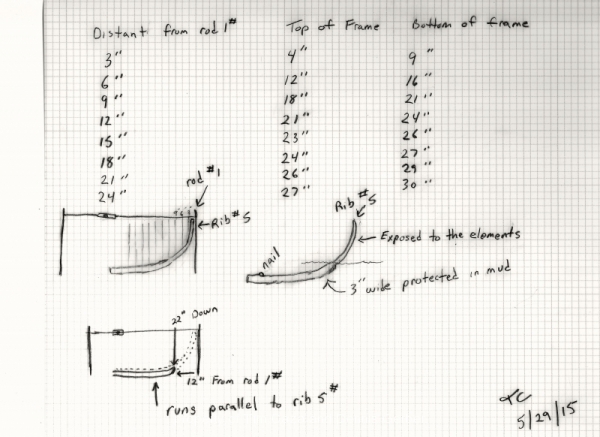 Distant from rod 1# Top of Frame Bottom of frame
3" 4" 9"
6" 12" 16"
9" 18" 21"
12" 21" 24"
15" 23" 26"
18" 24" 27"
21" 26" 29"
24" 27" 30"
rod #1
Rib #5
Rib #5
Exposed to the elements
nail
3" wide protected in mud
22" Down
12" From rod 1#
runs parallel to rib 5#
5/29/15